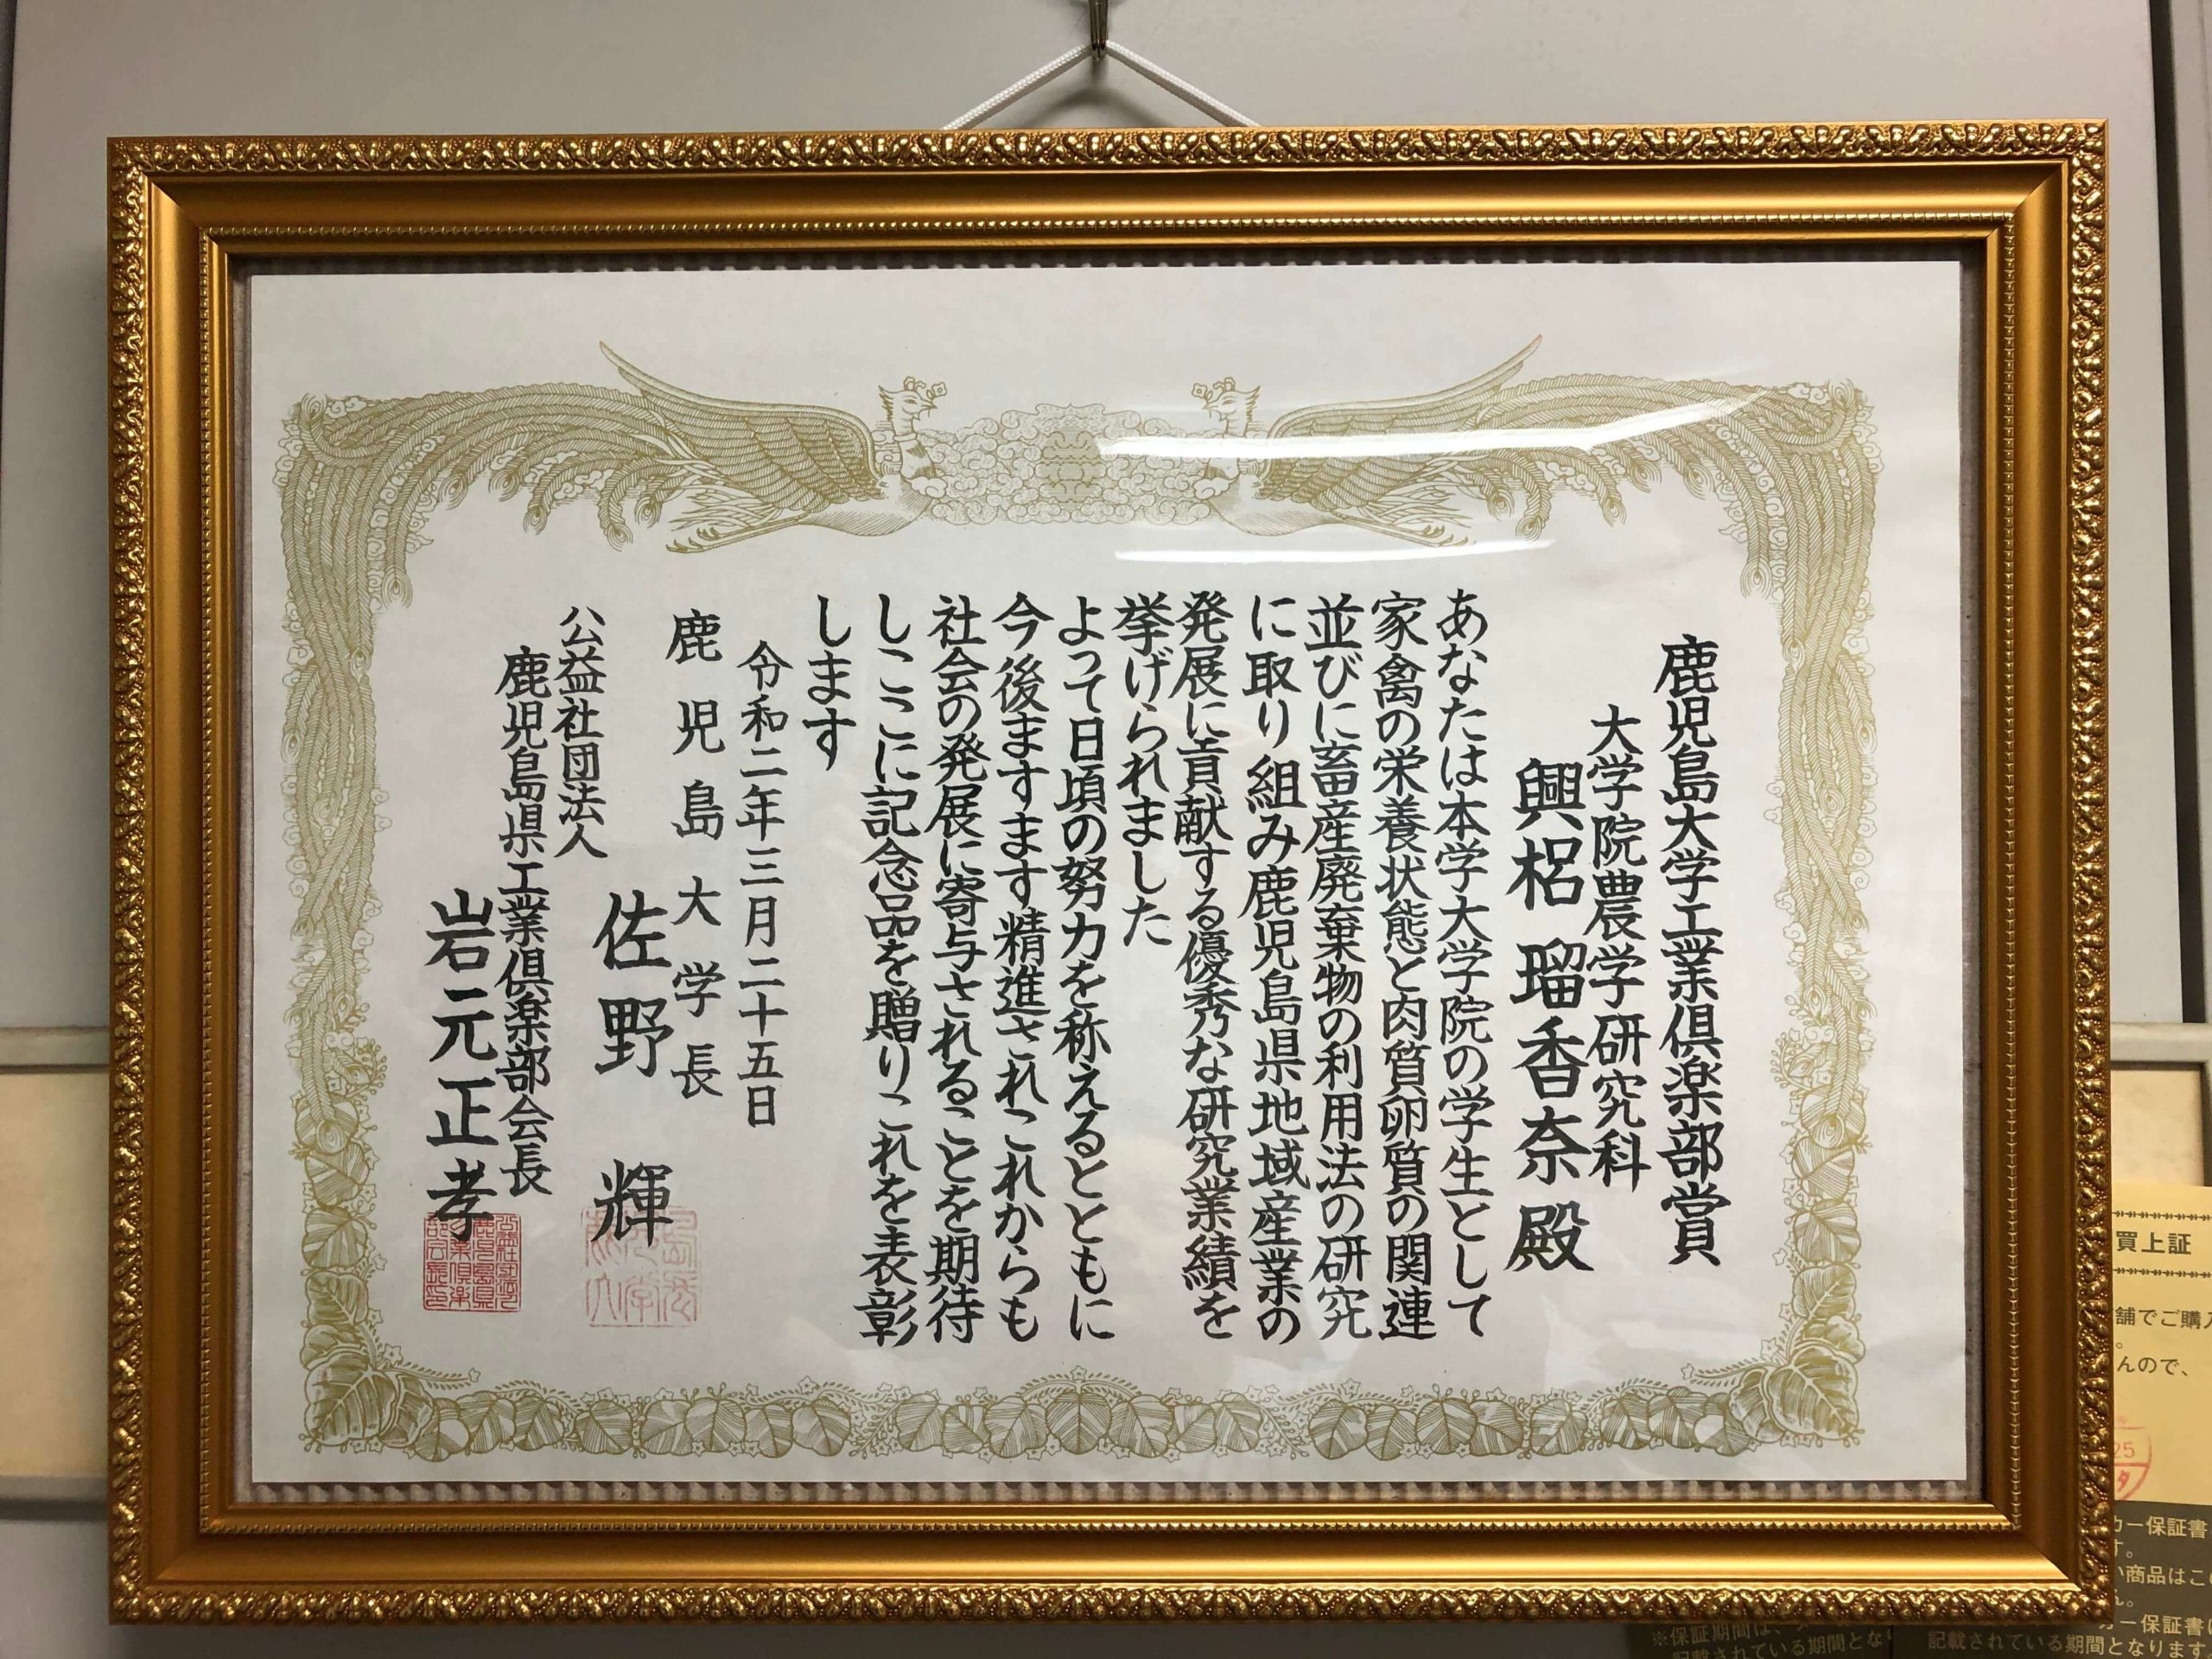 鹿児島大学工業倶楽部賞
大学院農学研究科
興梠瑠香奈殿
あなたは本学大学院の学生として
家禽の栄養状態と肉質卵質の関連
並びに畜産廃棄物の利用法の研究
に取り組み鹿児島県地域産業の
発展に貢献する優秀な研究業績を
挙げられました
よって日頃の努力を称えるとともに
今後ますます精進されこれからも
社会の発展に寄与されることを期待
しここに記念品を贈りこれを表彰
します
令和二年三月二十五日
鹿児島大学長
佐野輝
公益社団法人
鹿児島県工業倶楽部会長
岩元正孝
買上証
舗でご購入
んので、
25
カー保証書
す。
い商品はこの
ん。
カー保証書に
記載されている期間となります
※保証期間は、
記載されている期間とな